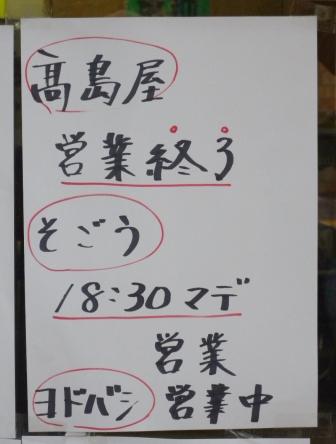 髙島屋
営業終了
そごう
18:30マデ
営業
ヨドバシ 営業中